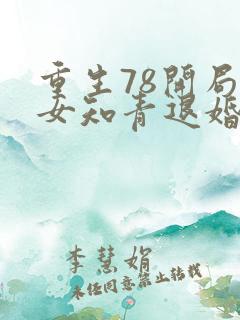 重生78开局
女知青退婚
李慧娟
未经同意禁止转载